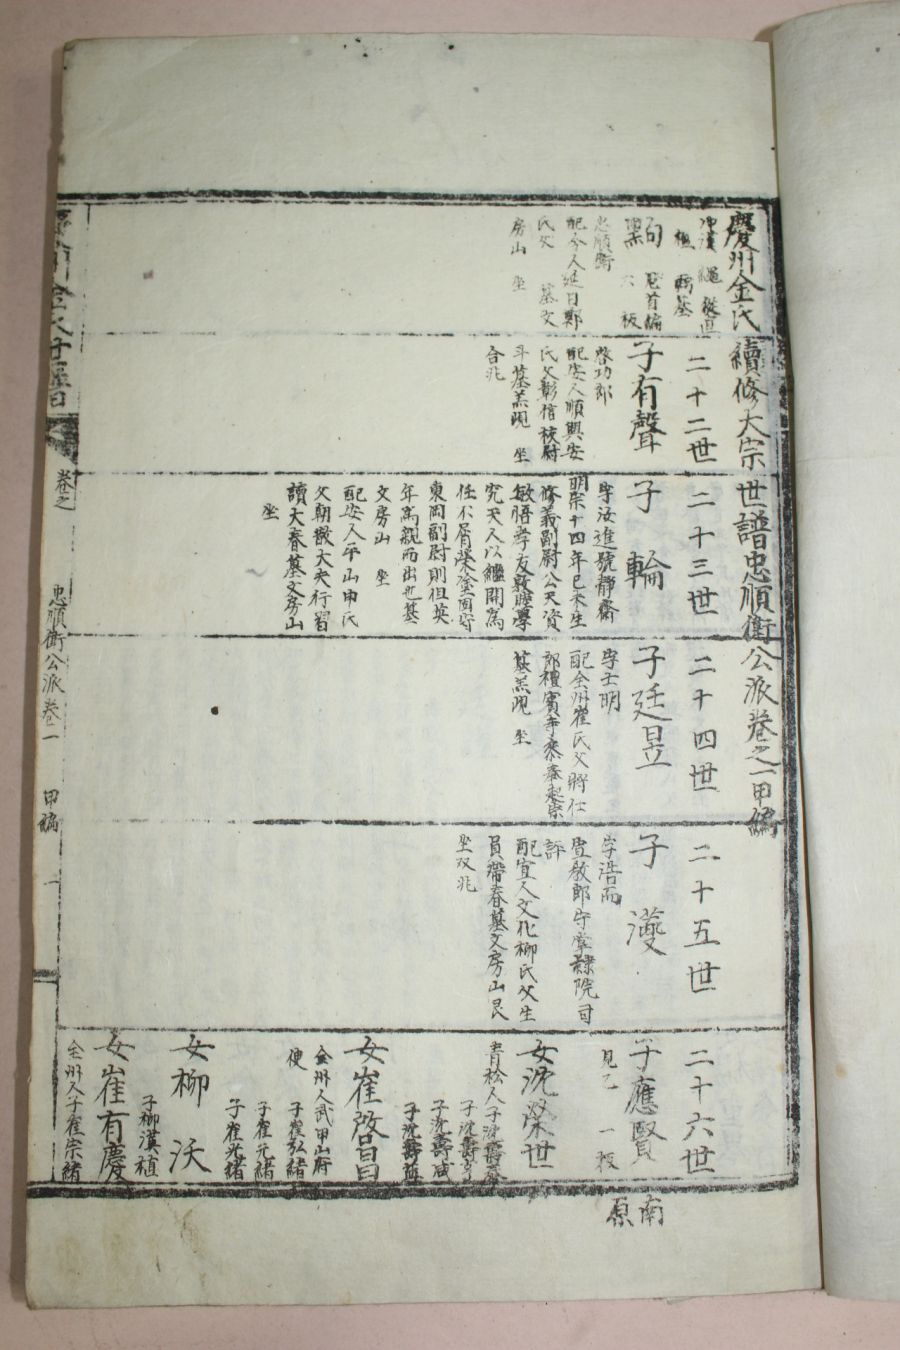 慶州金氏續修大宗世譜忠順衛公派卷之一甲編
忠順衛
配令人延日鄭
氏父 墓文
房山 坐
二十二世
子有聲
啓功郎
配安人順興安
氏父彰信校尉
斗墓羔峴 坐
合兆
二十三世
子 輪
字汝進號靜齋
明宗十四年己未生
修義副尉公天資
敏悟孝友敦睦學
究天人以繼開爲
任不屑榮塗固守
東岡副尉則但英
年爲親而出也墓
文房山 坐
配安人平山申氏
父朝散大夫行習
讀大春墓文房山
坐
二十四世
子廷昱
字士明
配全州崔氏父將仕
郎禮賓寺參奉起宗
墓羔峴 坐
二十五世
子 濩
字浩而
宣敎郎守掌隸院司
評
配宜人文化柳氏父生
員帶春墓文房山艮
坐双兆
二十六世
子應賢
見乙 一板
南原
女沈榮世
青松人子沈壽
子沈壽亨
子沈壽咸
子沈壽益
女崔啓昌
全州人武甲山府
使 子崔弘緖
子崔元緖
子崔光緖
女柳 沃
子柳漢禃
女崔有慶
全州人子崔宗緖
慶州金氏世譜
卷之
忠順衛公派卷一 甲編 一